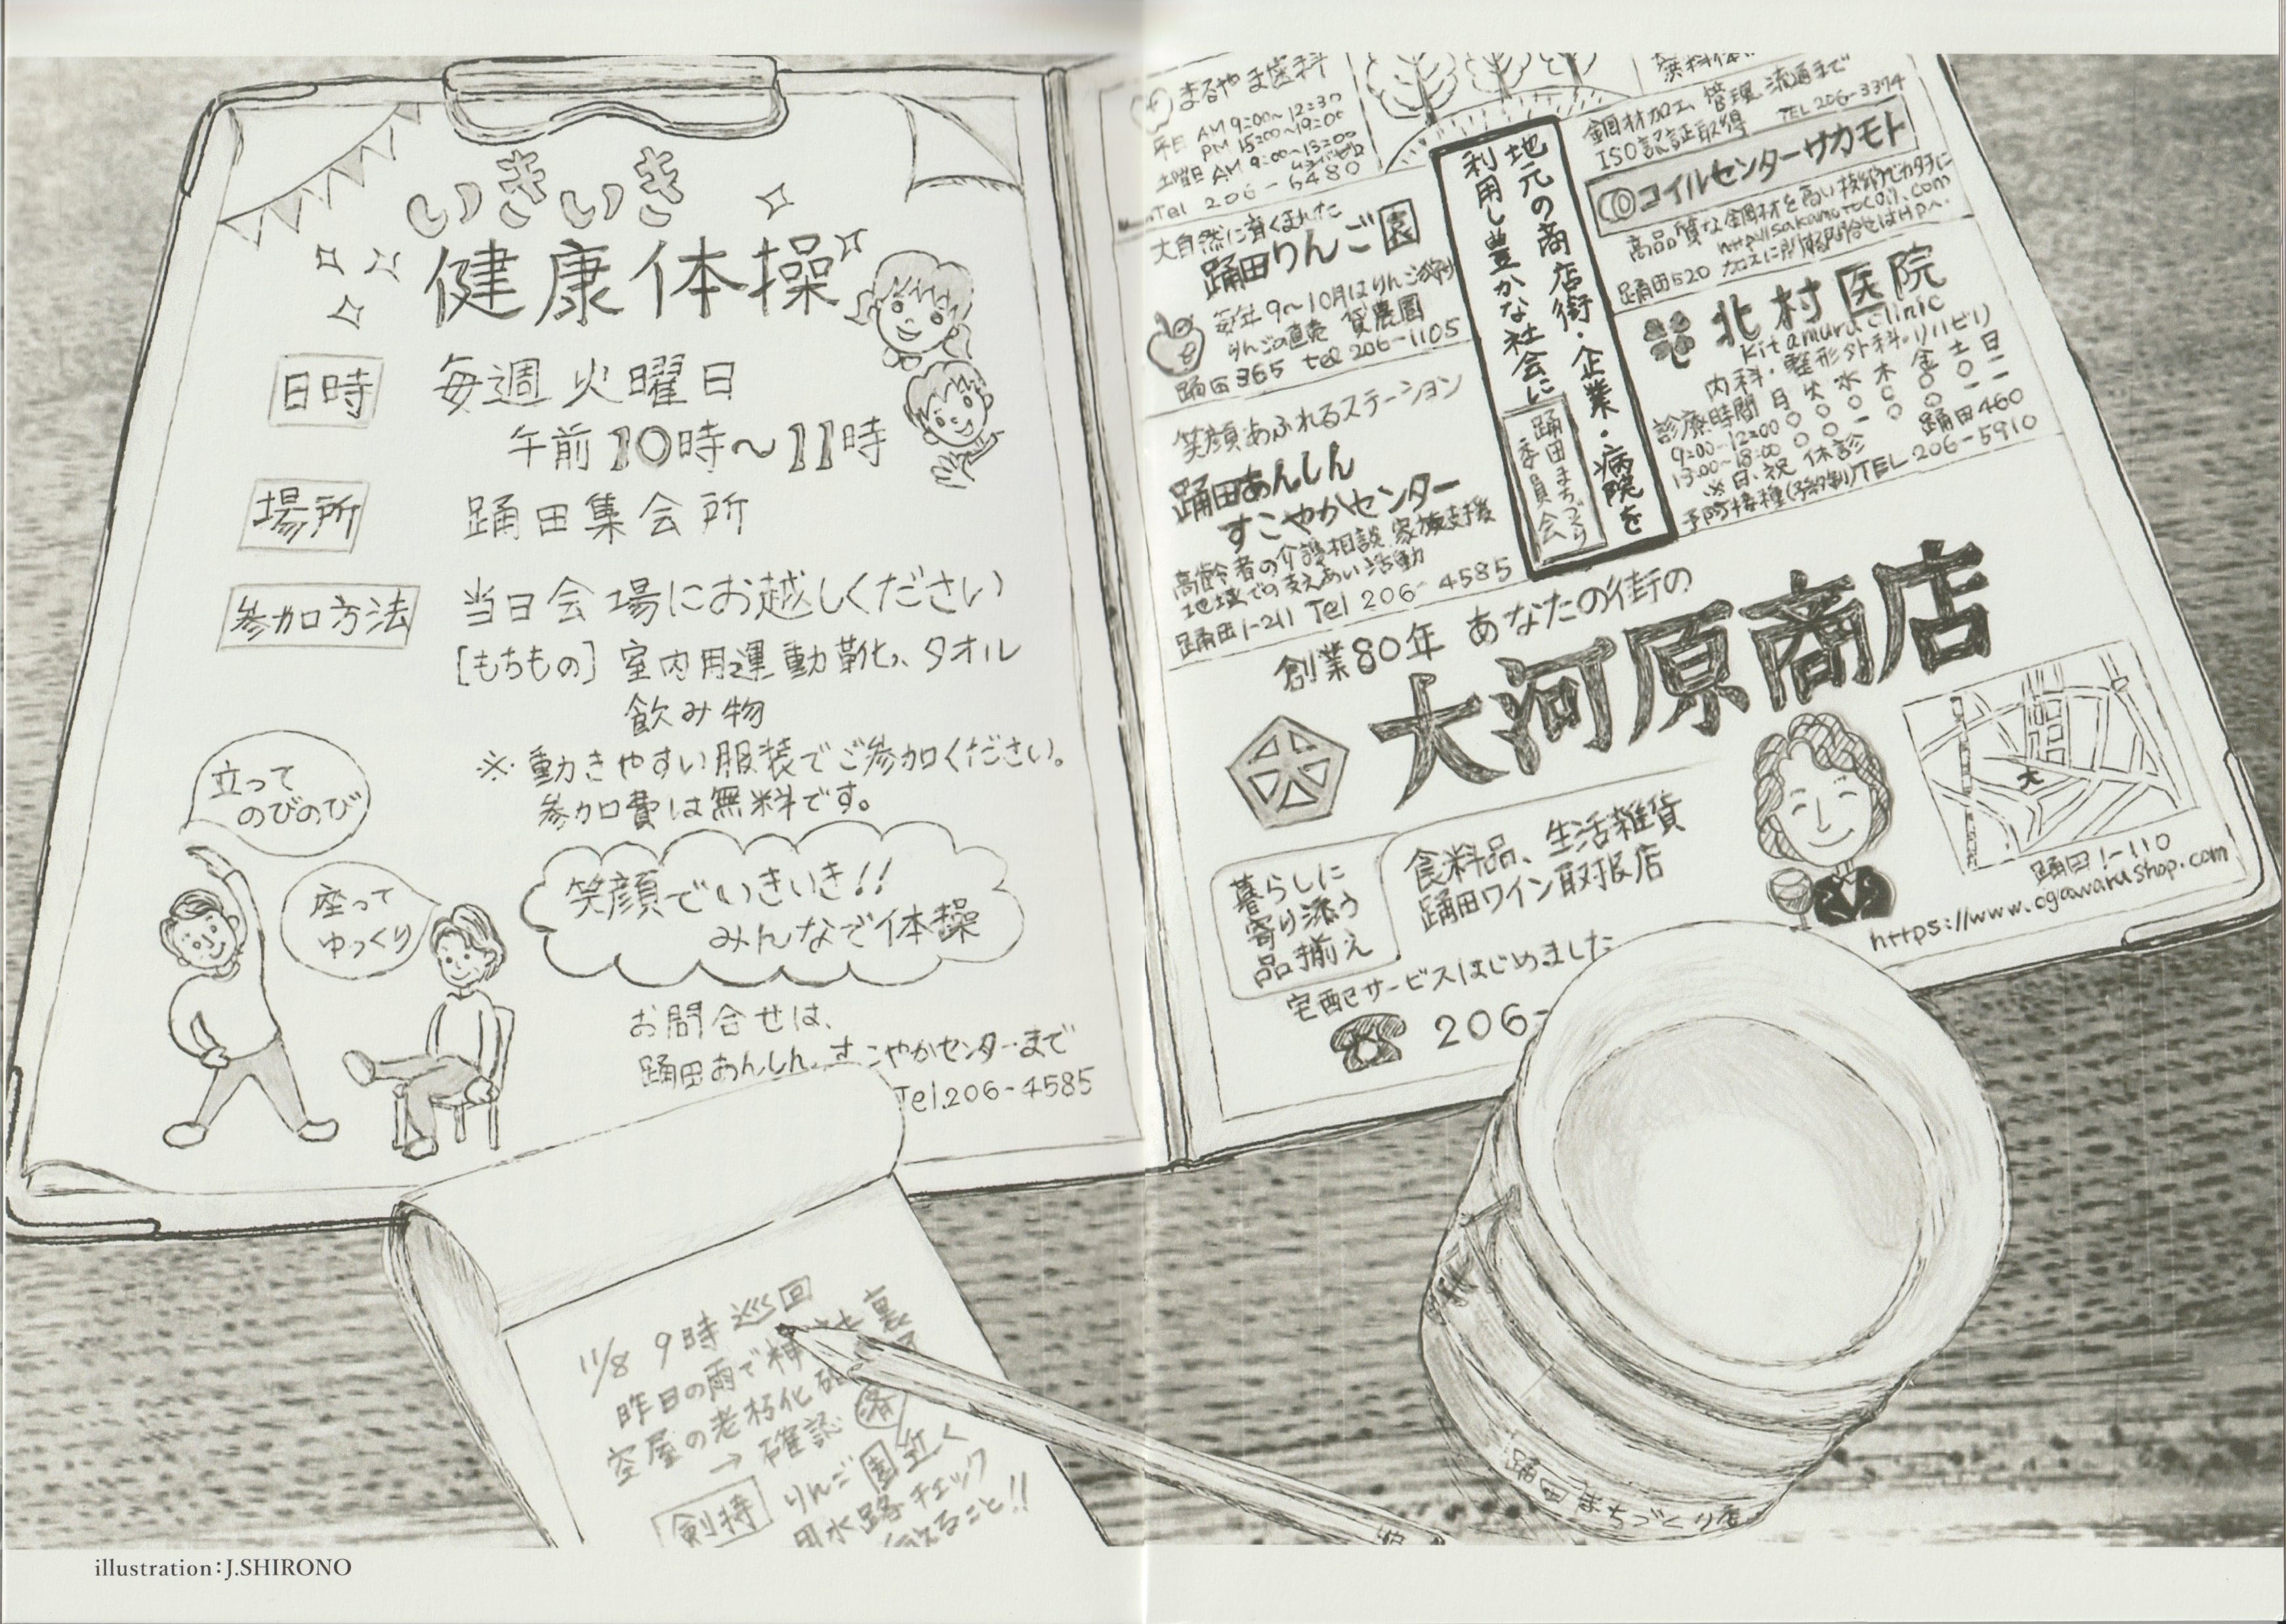 いきいき
健康体操
日時
毎週 火曜日
午前10時~11時
場所
踊田集会所
参加方法
当日会場にお越しください
[もちもの] 室内用運動靴、タオル
飲み物
※動きやすい服装でご参加ください。
参加費は無料です。
立って
のびのび
座って
ゆっくり
笑顔でいきいき!!
みんなで体操
お問合せは、
踊田あんしんすこやかセンターまで
Tel.206-4585
11/8 9時 巡回
昨日の雨で
空屋の老朽化
→確認 済
剣持
りんご園近く
用水路チェック
えること!!
まるやま歯科
平日 AM 9:00~12:30
PM 15:00~19:00
土曜日 AM 9:00~13:00
Tel 206-5480
大自然に育くまれた
踊田りんご園
毎年9~10月はりんご狩り
りんごの直売 貸農園
踊田365 tel 206-1105
笑顔あふれるステーション
踊田あんしん
すこやかセンター
高齢者の介護相談 家族支援
地域での支えあい活動
踊田1-211 Tel 206-4585
地元の商店街・企業・病院を
利用し豊かな社会に
踊田まちづくり
委員会
無料体
鋼材加工、管理、流通まで
ISO認証取得 TEL 206-3374
コイルセンターサカモト
高品質な鋼材を高い技術でカタチに
http://sakamotocoil.com
踊田520 加工に関する問合せはHPへ。
北村医院
Kitamura clinic
内科・整形外科・リハビリ
診療時間 月 火 水 木 金 土 日
9:00~12:00 ○ ○ ○ ○ ○ ○ ー
13:00~18:00 ○ ○ ー ○ ○ ー ー
※日、祝 休診 踊田460
予防接種(予約制) TEL 206-5910
創業80年 あなたの街の
大河原商店
暮らしに
寄り添う
品揃え
食料品、生活雑貨
踊田ワイン取扱店
宅配サービスはじめました
206-
大
踊田1-110
https://www.ogawarashop.com
踊田まちづくり委
illustration:J.SHIRONO